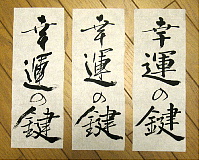 幸運の鍵
幸運の鍵
幸運の鍵